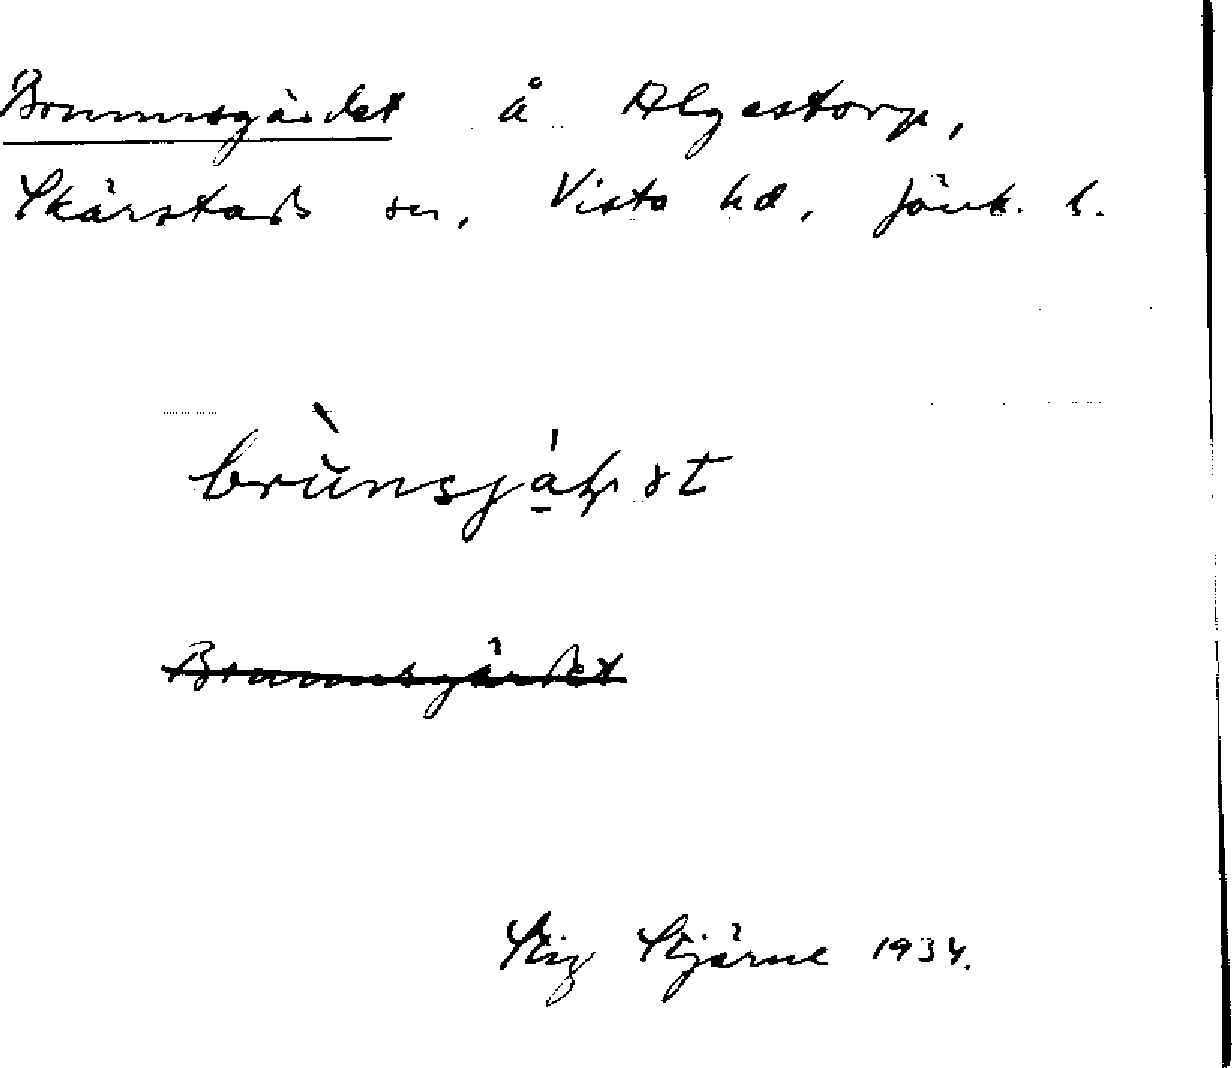 Brunnsgärdet å Algestorp,
Skärstads sn, Vista hd, Jönk. l.
Brunnsgärdet
Stig Stjärne 1934.